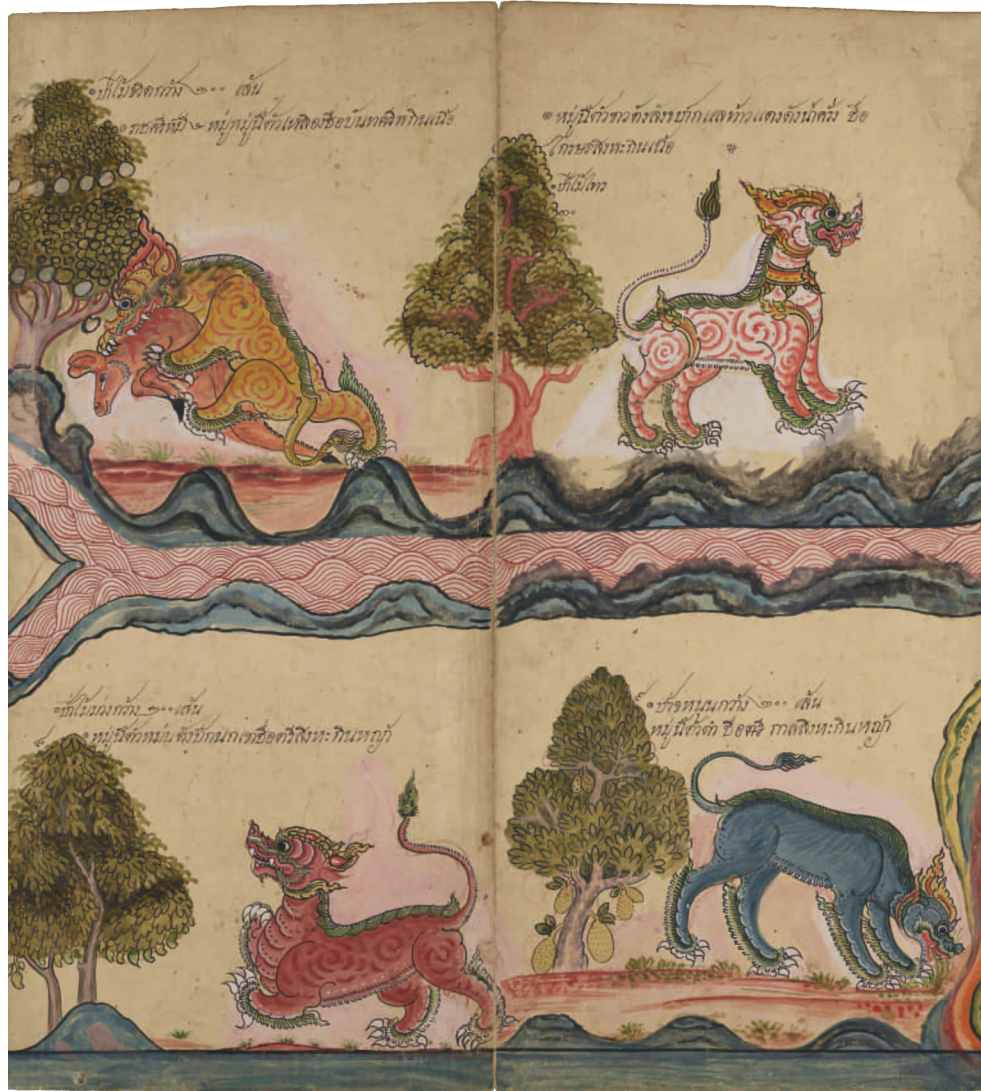 ป่าไม้ขวิดกว้าง ๓๐๐ เส้น
ราชสิหมี ๔ หมู่หมู่นี้ตัวเหลืองชื่อบันทศรีหกินเนื้อ
หมู่นี้ตัวขาวดังสังขปากแลท้าวแดงดังน้ำครั่ง ชื่อ
ไกรษรสิงหะกินเนื้อ
ป่าไม้ไทร
๓๐
ป่าไม้ม่วงกว้าง ๓๐๐ เส้น
หมู่นี้ตัวหม่นดังปีกนกเขาชื่อตรีสิงหะกินหญ้า
ป่าขหนุนกว้าง ๓๐๐ เส้น
หมู่นี้ตัวดำ ชื่อ กาลสิงหะกินหญ้า